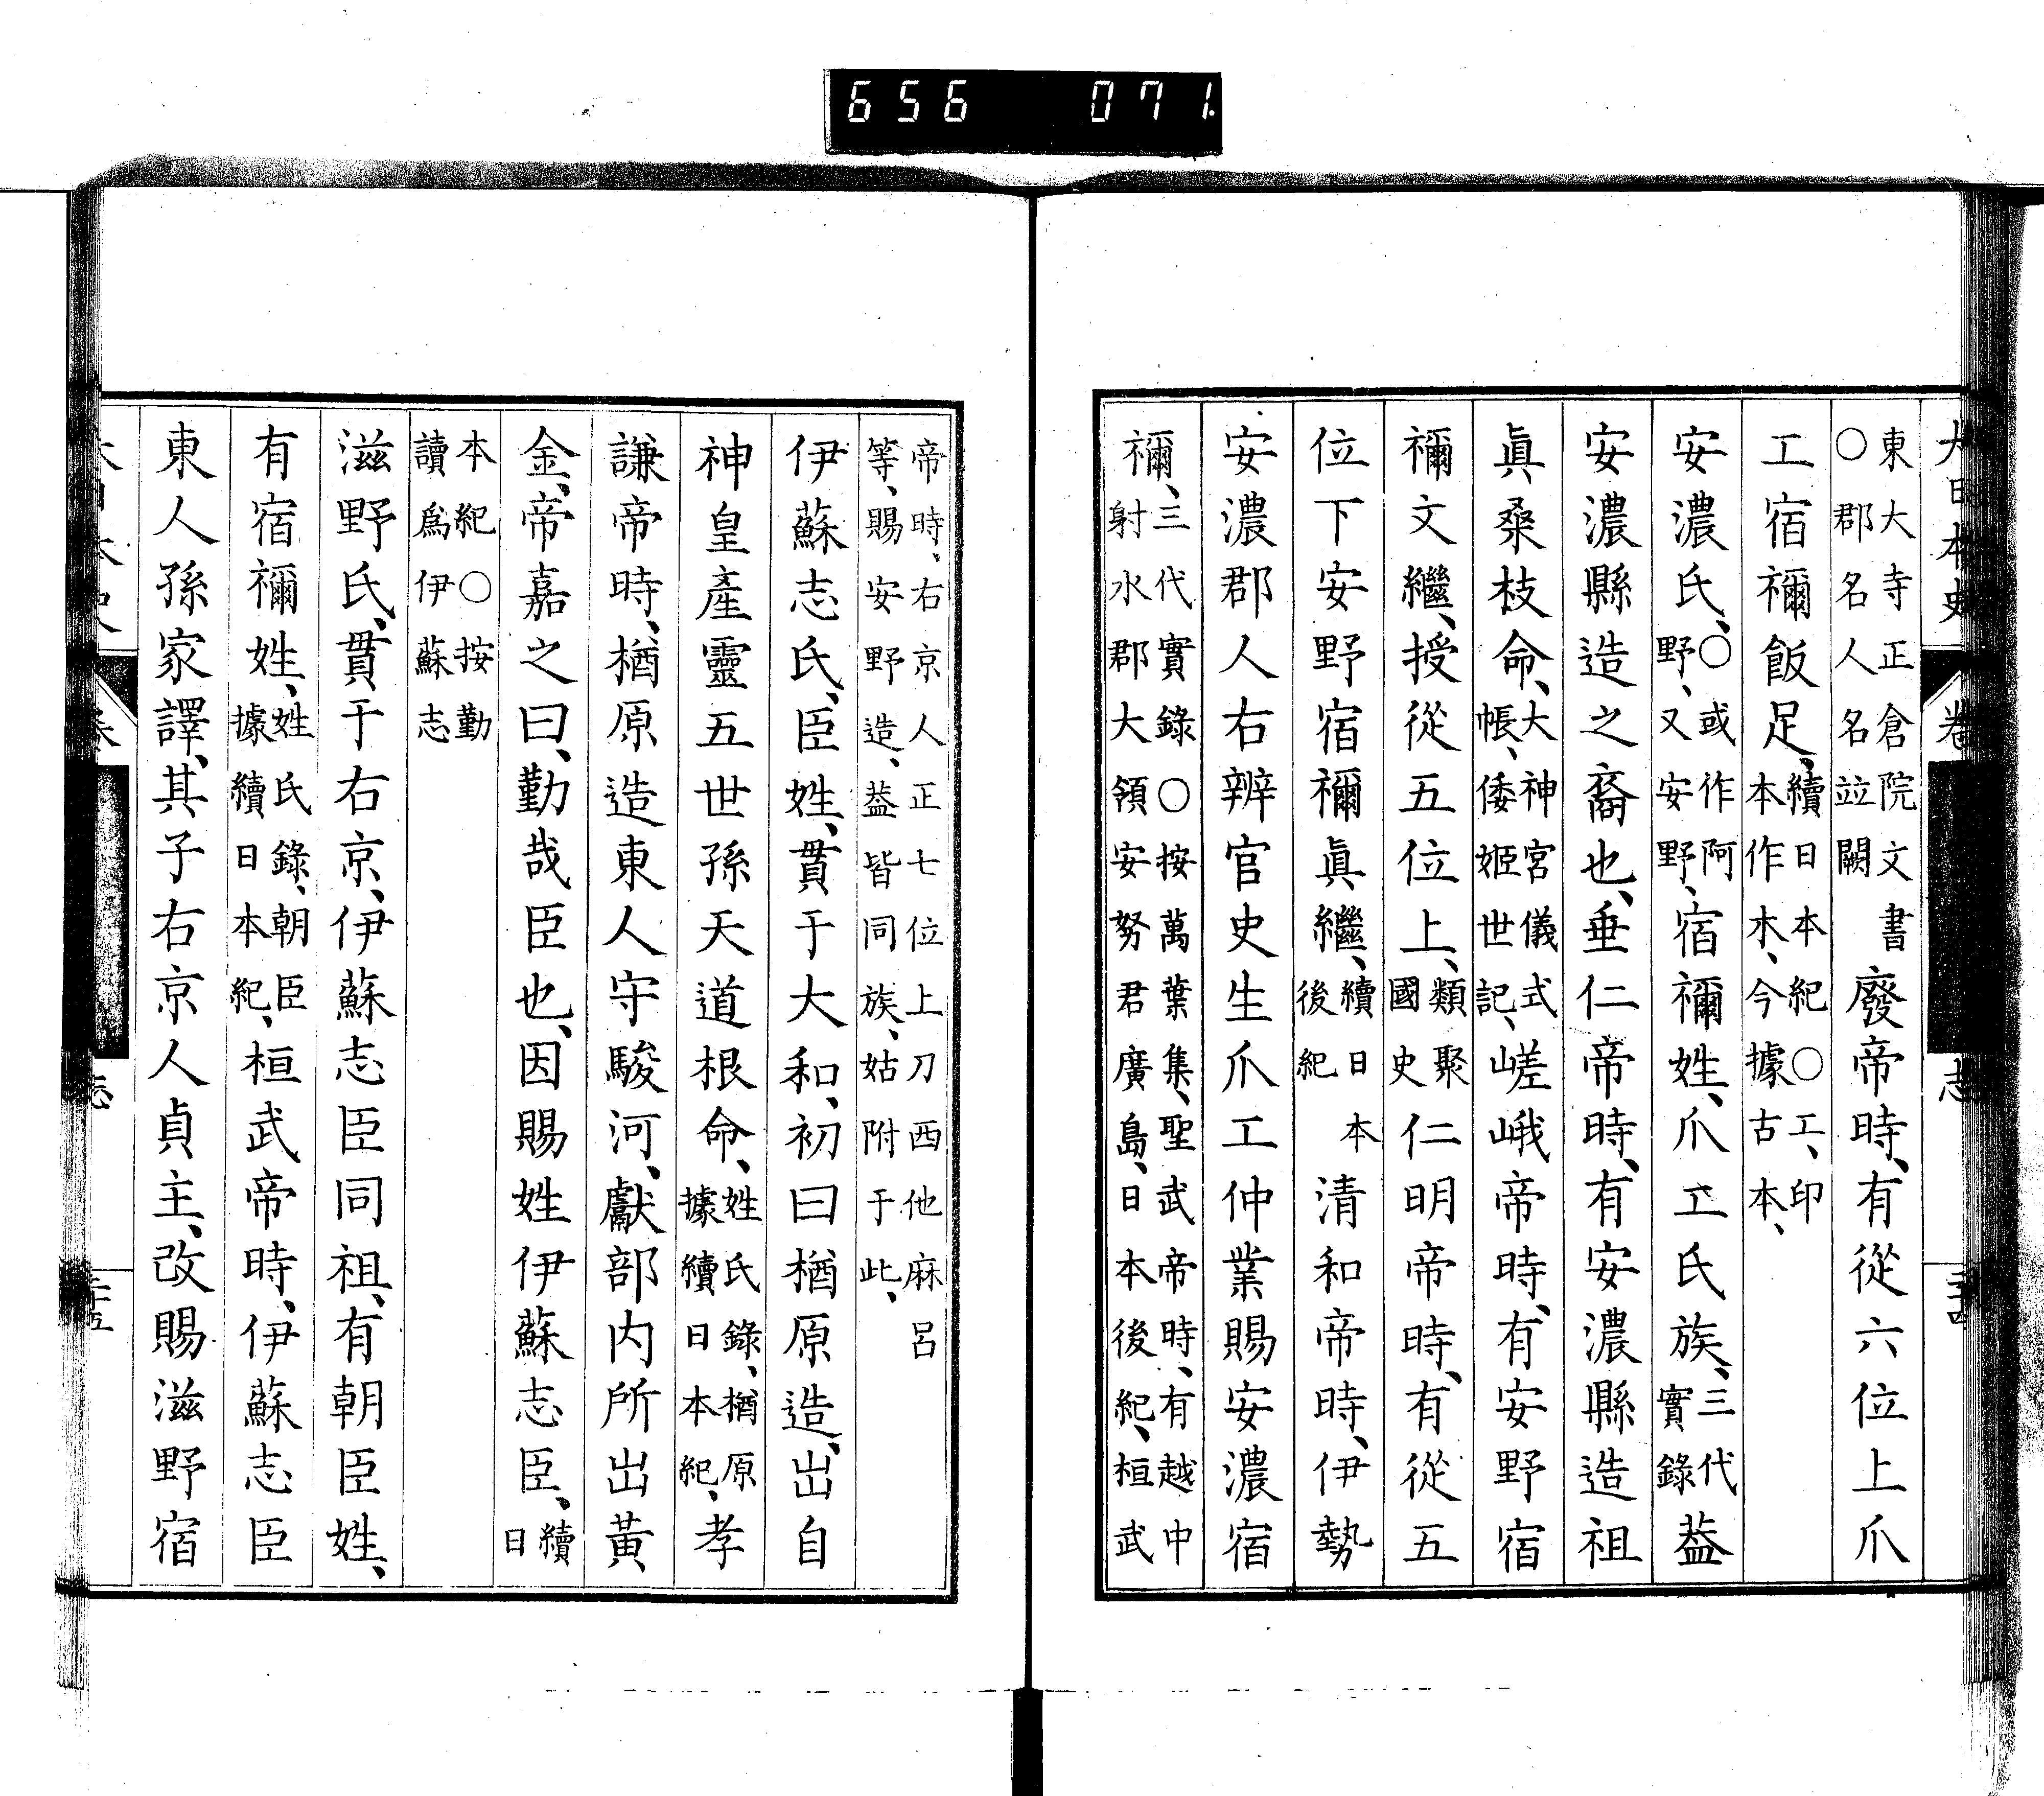 656 071.
大日本史 卷 志 三十四
東大寺正倉院文書
○郡名人名竝闕
廢帝時、有從六位上爪
工宿禰飯足、
續日本紀○工、印
本作木、今據古本、
安濃氏、
○或作阿
野、又安野、
宿禰姓、爪工氏族、
三代
實錄
葢
安濃縣造之裔也、垂仁帝時、有安濃縣造祖
眞桑枝命、
大神宮儀式
帳、倭姬世記、
嵯峨帝時、有安野宿
禰文繼、授從五位上、
類聚
國史
仁明帝時、有從五
位下安野宿禰眞繼、
續日本
後紀
清和帝時、伊勢
安濃郡人右辨官史生爪工仲業賜安濃宿
禰、
三代實錄○按萬葉集、聖武帝時、有越中
射水郡大領安努君廣島、日本後紀、桓武
帝時、右京人正七位上刀西他麻呂
等、賜安野造、葢皆同族、姑附于此、
伊蘇志氏、臣姓、貫于大和、初曰楢原造、出自
神皇產靈五世孫天道根命、
姓氏錄、楢原
據續日本紀、
孝
謙帝時、楢原造東人守駿河、獻部內所出黃
金、帝嘉之曰、勤哉臣也、因賜姓伊蘇志臣、
續
日
本紀○按勤
讀爲伊蘇志
滋野氏、貫于右京、伊蘇志臣同祖、有朝臣姓、
有宿禰姓、
姓氏錄、朝臣
據續日本紀、
桓武帝時、伊蘇志臣
東人孫家譯、其子右京人貞主、改賜滋野宿